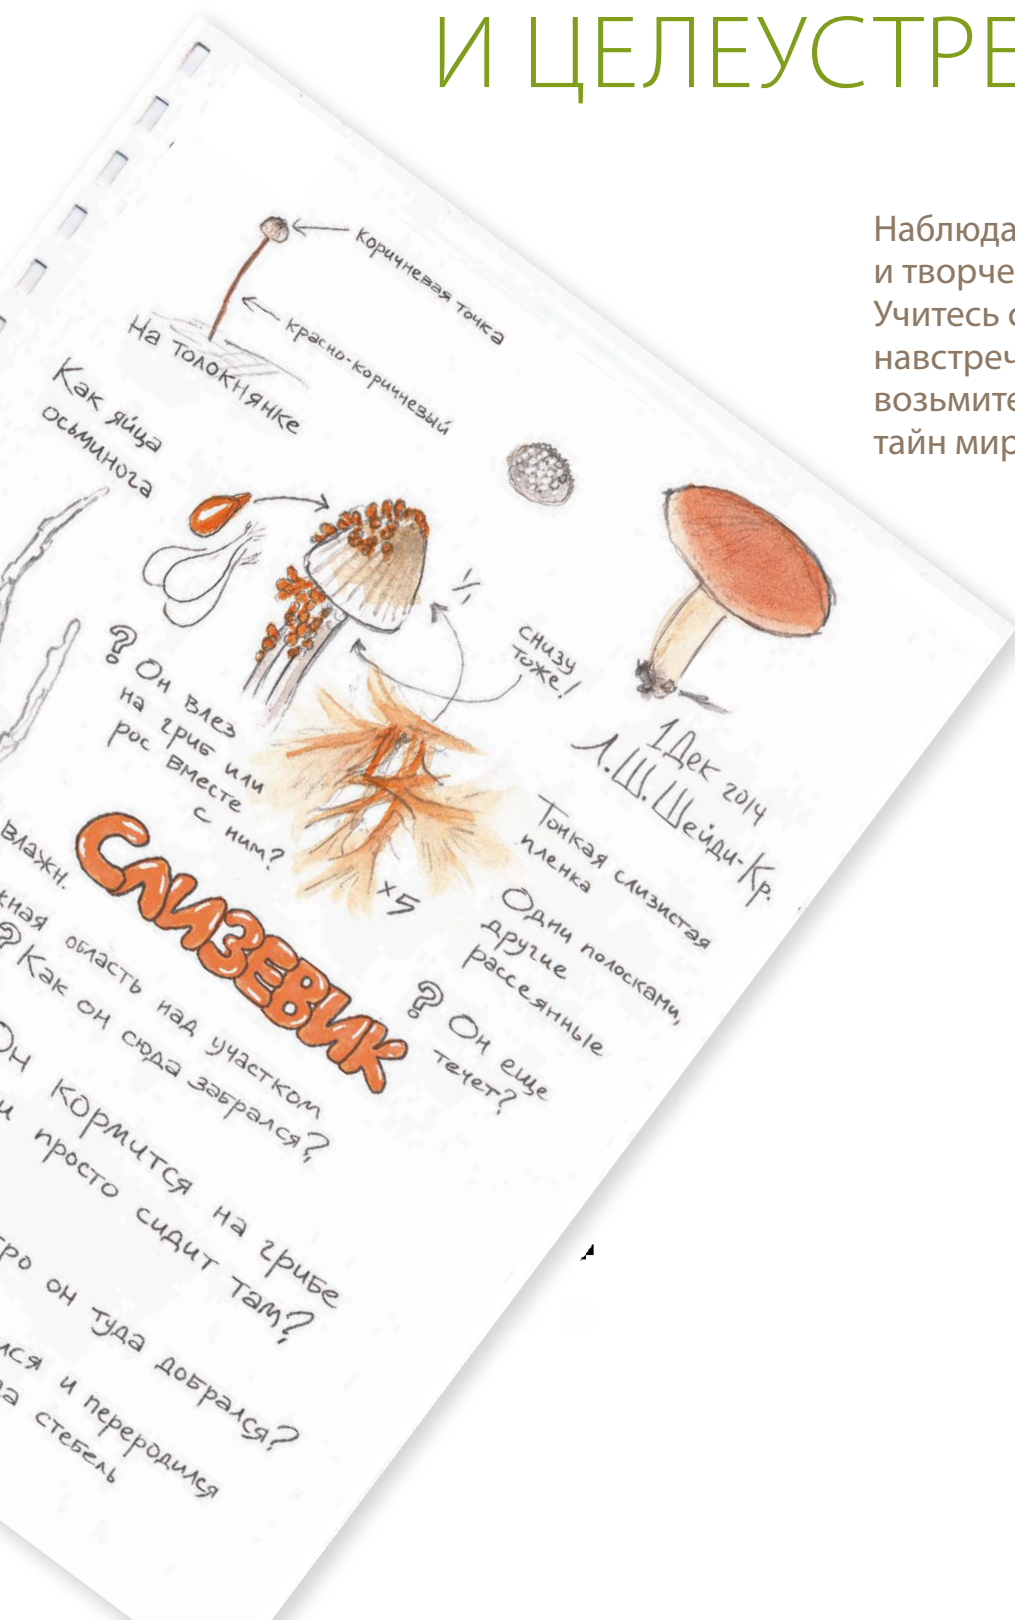 И ЦЕЛЕУСТРЕ
Наблюда
и творче
Учитесь
навстреч
возьмите
тайн мир
коричневая точка
красно-коричневый
На толокнянке
Как яйца
осьминога
1/1
снизу
тоже!
? Он влез
на гриб или
рос вместе
с ним?
x5
1 Дек 2014
Л.Ш. Шейди-Кр.
Тонкая слизистая
пленка
Одни полосками,
другие
рассеянные
? Он еще
течет?
СЛИЗЕВИК
влажн.
жная область над участком
? Как он сюда забрался?
Он кормится на грибе
и просто сидит там?
тро он туда добрался?
лся и переродился
да стебель